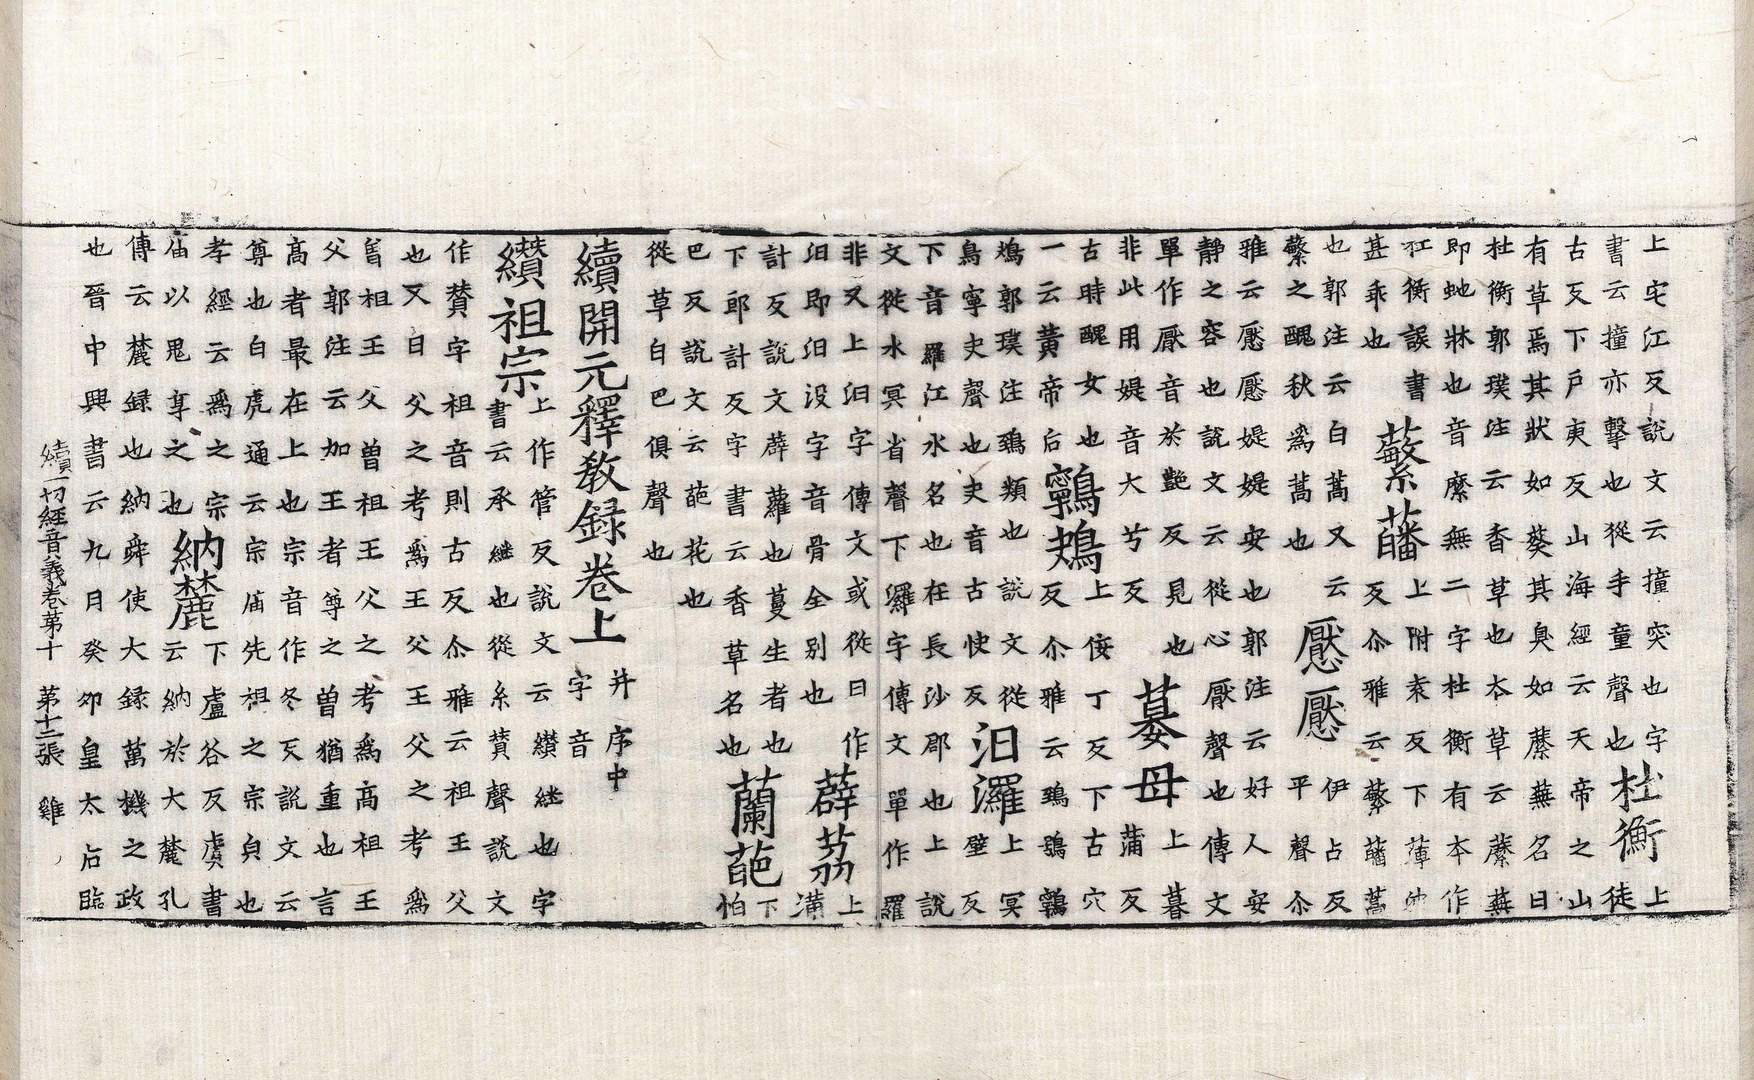 上宅江反説文云撞突也字
書云撞亦擊也從手童聲也
杜衡
上
徒
古反下戸庚反山海經云天帝之山
有草焉其狀如葵其臭如蘼蕪名曰
杜衡郭璞注云香草也本草云蘼蕪
即虵牀也音麋無二字杜衡有本作
杜衡誤書
甚乖也
蘩
上附袁反下
反尒雅云蘩蒿
也郭注云白蒿又云
蘩之醜秋爲蒿也
懕懕
伊占反
平聲尒
雅云懕懕媞媞安也郭注云好人安
静之容也説文云從心厭聲也傳文
單作厭音於艶反見也
非此用媞音大兮反
嫫母
上暮
蒲反
古時醜女也
一云黃帝后
鸋鴂
上佞丁反下古穴
反尒雅云鵄鴞鸋
鴂郭璞注鵄類也説文從
鳥寧史聲也史音古快反
汨㶒
上冥
壁反
下音羅江水名也在長沙郡也上説
文從水冥省聲下㶒字傳文單作羅
非又上汨字傳文或從曰作
汩即汩没字音骨全别也
薜荔
上
蒲
計反説文薜蘿也蔓生者也
下郎計反字書云香草名也
蘭葩
下
怕
巴反説文云葩花也
從草白巴俱聲也
續開元釋教録卷上 并序中
字音
纉祖宗
上作管反説文云纉継也字
書云承継也從糸賛聲説文
作贊字祖音則古反尒雅云祖王父
也又曰父之考爲王父王父之考爲
曽祖王父曽祖王父之考爲高祖王
父郭注云加王者尊之曽猶重也言
高者最在上也宗音作冬反説文云
尊也白虎通云宗庿先祖之宗皃也
孝經云爲之宗
庿以鬼享之也
納麓
下盧谷反虞書
云納於大麓孔
傳云麓録也納舜使大録萬機之政
也晉中興書云九月癸夘皇太后臨
續一切經音義卷第十 第十二張 雞